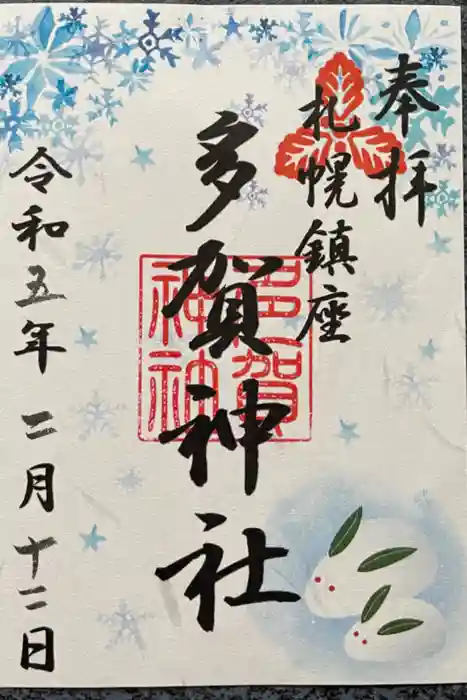 奉拝
札幌鎮座
多賀神社
多賀
神社
令和五年 二月十二日